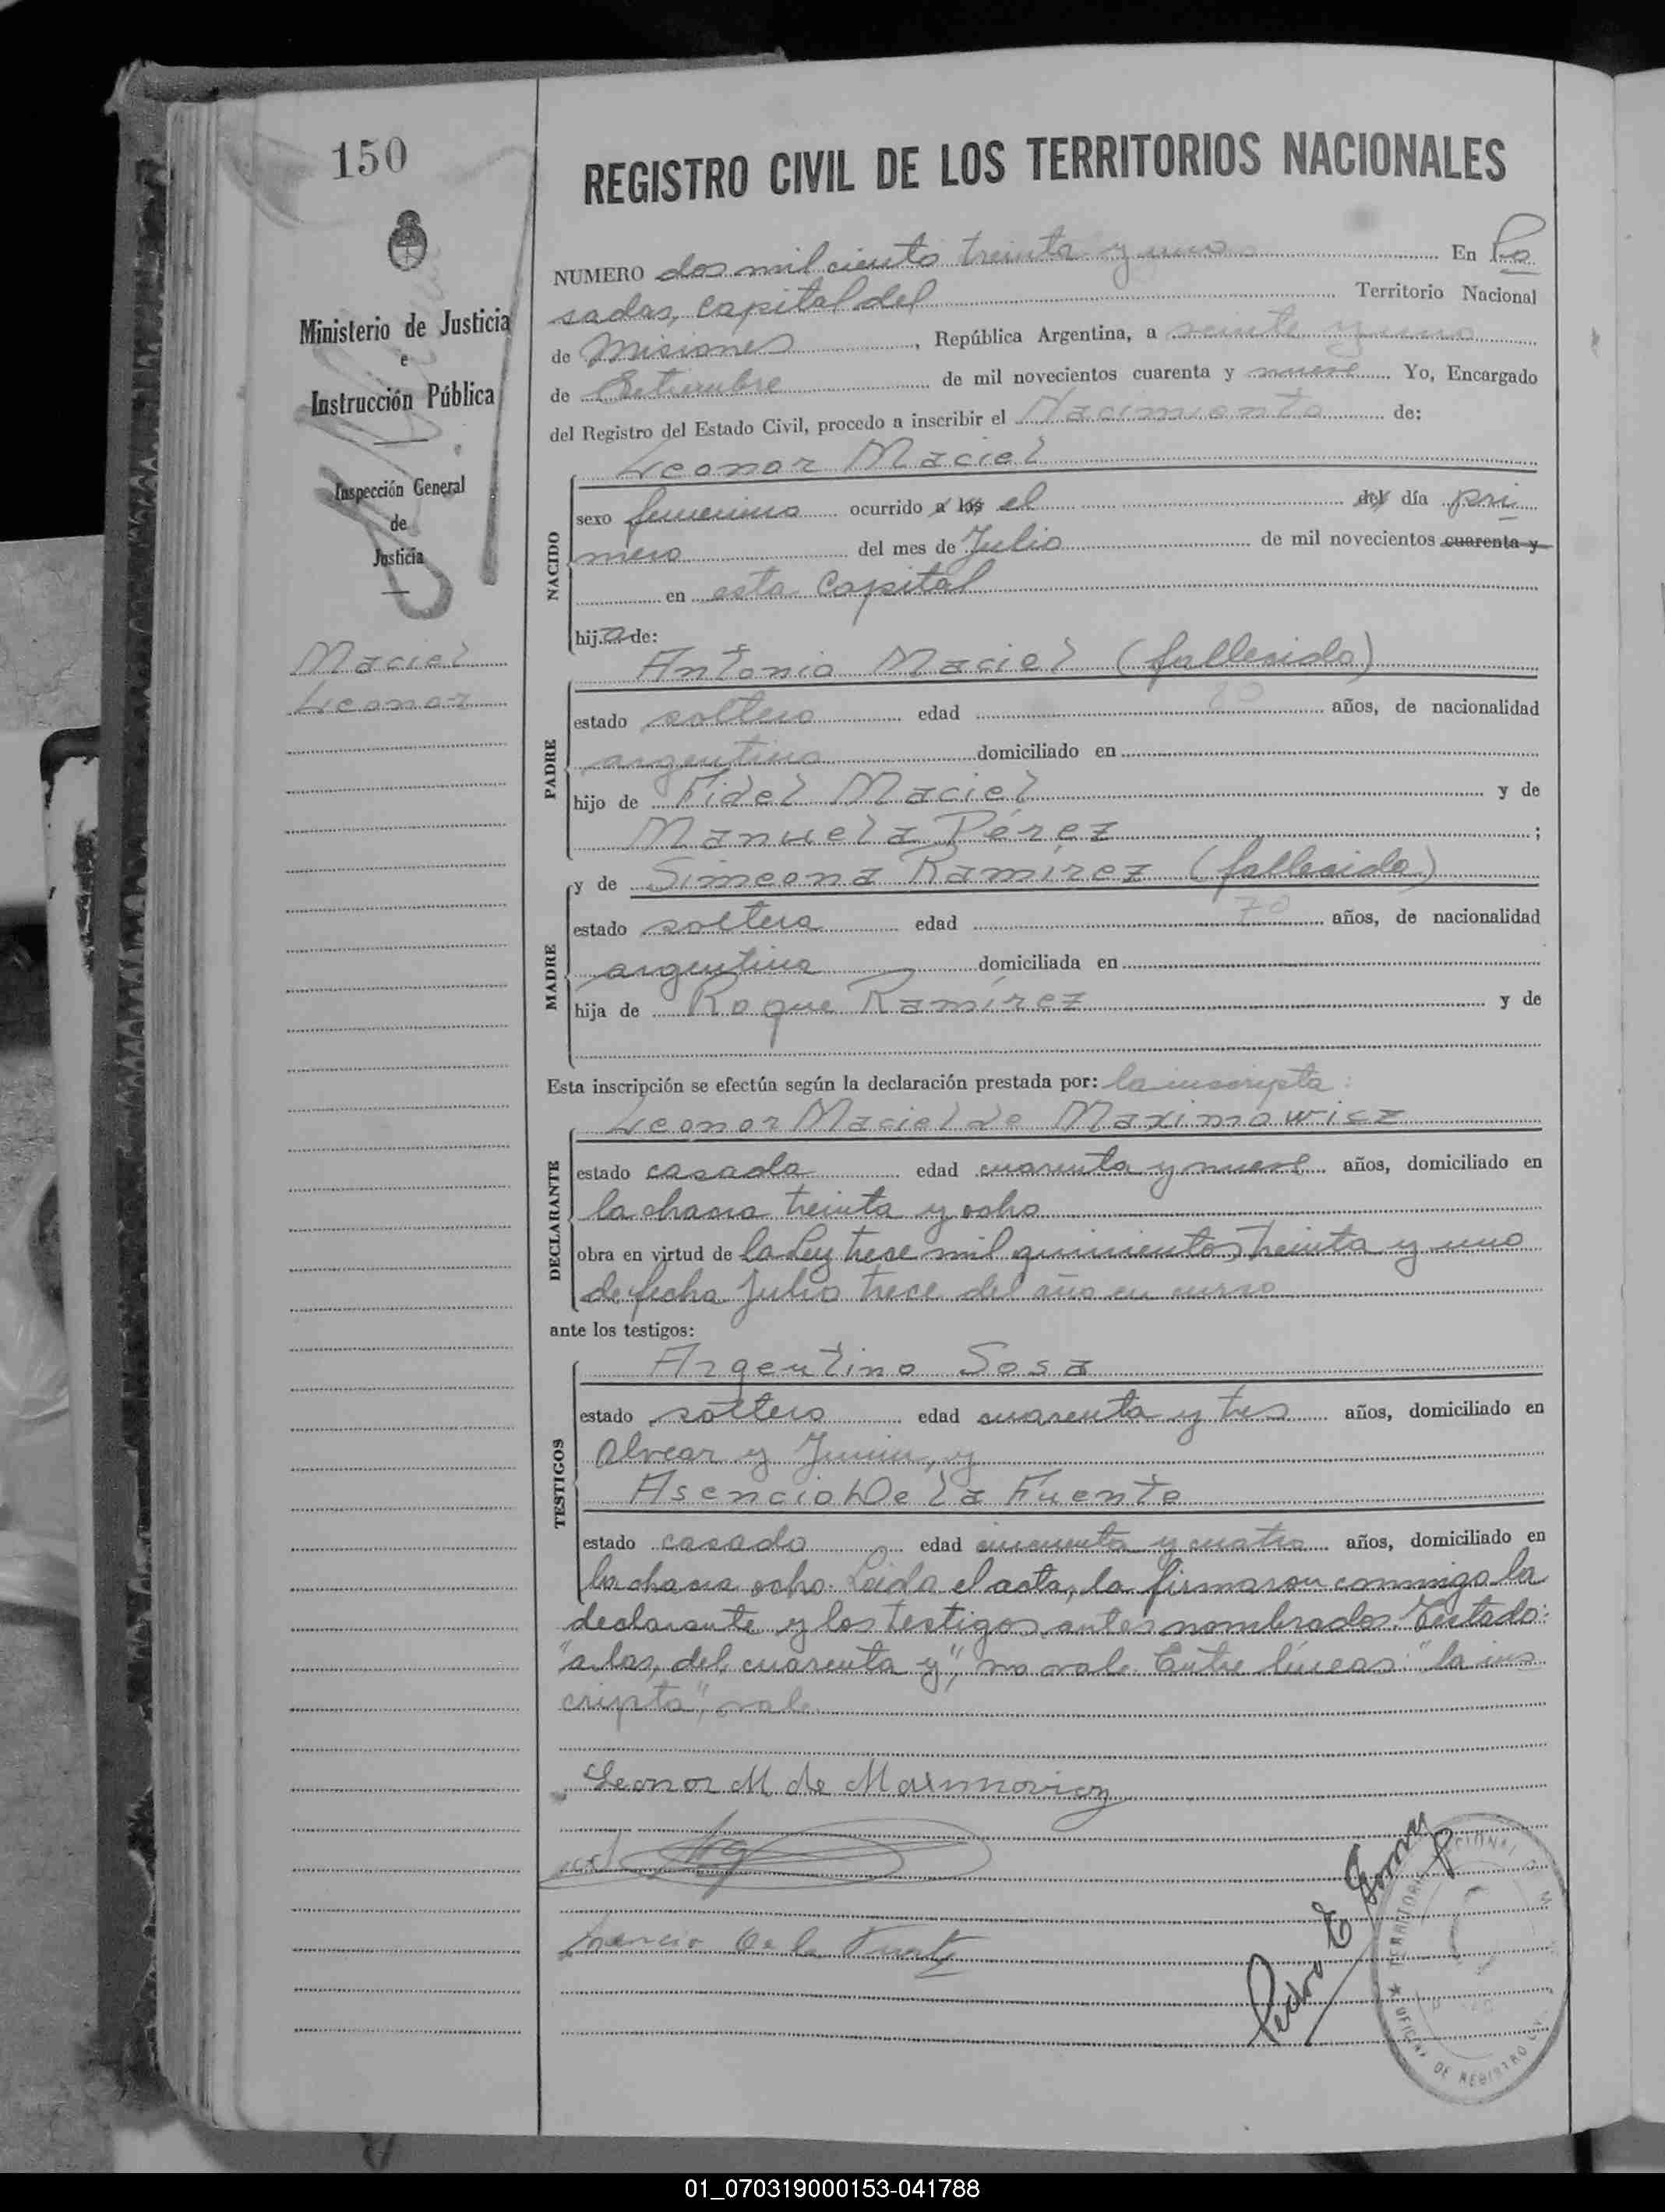 150
REGISTRO CIVIL DE LOS TERRITORIOS NACIONALES
Ministerio de Justicia
e
Instrucción Pública
Inspección General
de
Justicia
Maciel
Leonor
NUMERO dos mil ciento treinta y uno En Po
sadas, capital del Territorio Nacional
de Misiones, República Argentina, a veinte y uno
de Setiembre de mil novecientos cuarenta y nueve Yo, Encargado
del Registro del Estado Civil, procedo a inscribir el Nacimiento de:
NACIDO
Leonor Maciel
sexo femenino ocurrido a las el del día pri
mero del mes de Julio de mil novecientos cuarenta y
en esta Capital
hija de:
PADRE
Antonio Maciel (fallecido)
estado soltero edad años, de nacionalidad
argentino domiciliado en
hijo de Fidel Maciel y de
Manuela Pérez ;
MADRE
y de Simeona Ramírez (fallecida)
estado soltera edad 70 años, de nacionalidad
argentina domiciliada en
hija de Roque Ramírez y de
Esta inscripción se efectúa según la declaración prestada por: la inscripta:
DECLARANTE
Leonor Maciel de Maximowicz
estado casada edad cuarenta y nueve años, domiciliado en
la chacra treinta y ocho
obra en virtud de la Ley trece mil quinientos treinta y uno
de fecha Julio trece del año en curso
ante los testigos:
TESTIGOS
Argentino Sosa
estado soltero edad cuarenta y tres años, domiciliado en
Alvear y Junín, y
Asencio De la Fuente
estado casado edad cincuenta y cuatro años, domiciliado en
la chacra ocho. Leida el acta, la firmaron conmigo la
declarante y los testigos antes nombrados. Testado:
"a las, del, cuarenta y", no vale. Entre líneas: "la ins
cripta", vale.
Leonor M de Maximovicz
Asencio De la Fuente
Pedro E Gomez
OFICINA DE REGISTRO
01_070319000153-041788